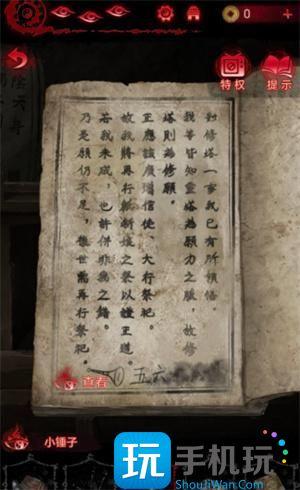 0
特权
提示
對修塔一事我已有所領悟。
我等皆知靈塔為願力之脈，故修
塔則為修願。
正應該廣增信徒、大行祭祀。
故我將再行紙新娘之祭以證王道。
若我未成，也許併非我之錯。
乃是願仍不足，後世需再行祭祀。
五六
查看
小锤子
玩手机玩
ShouJiWan.Com